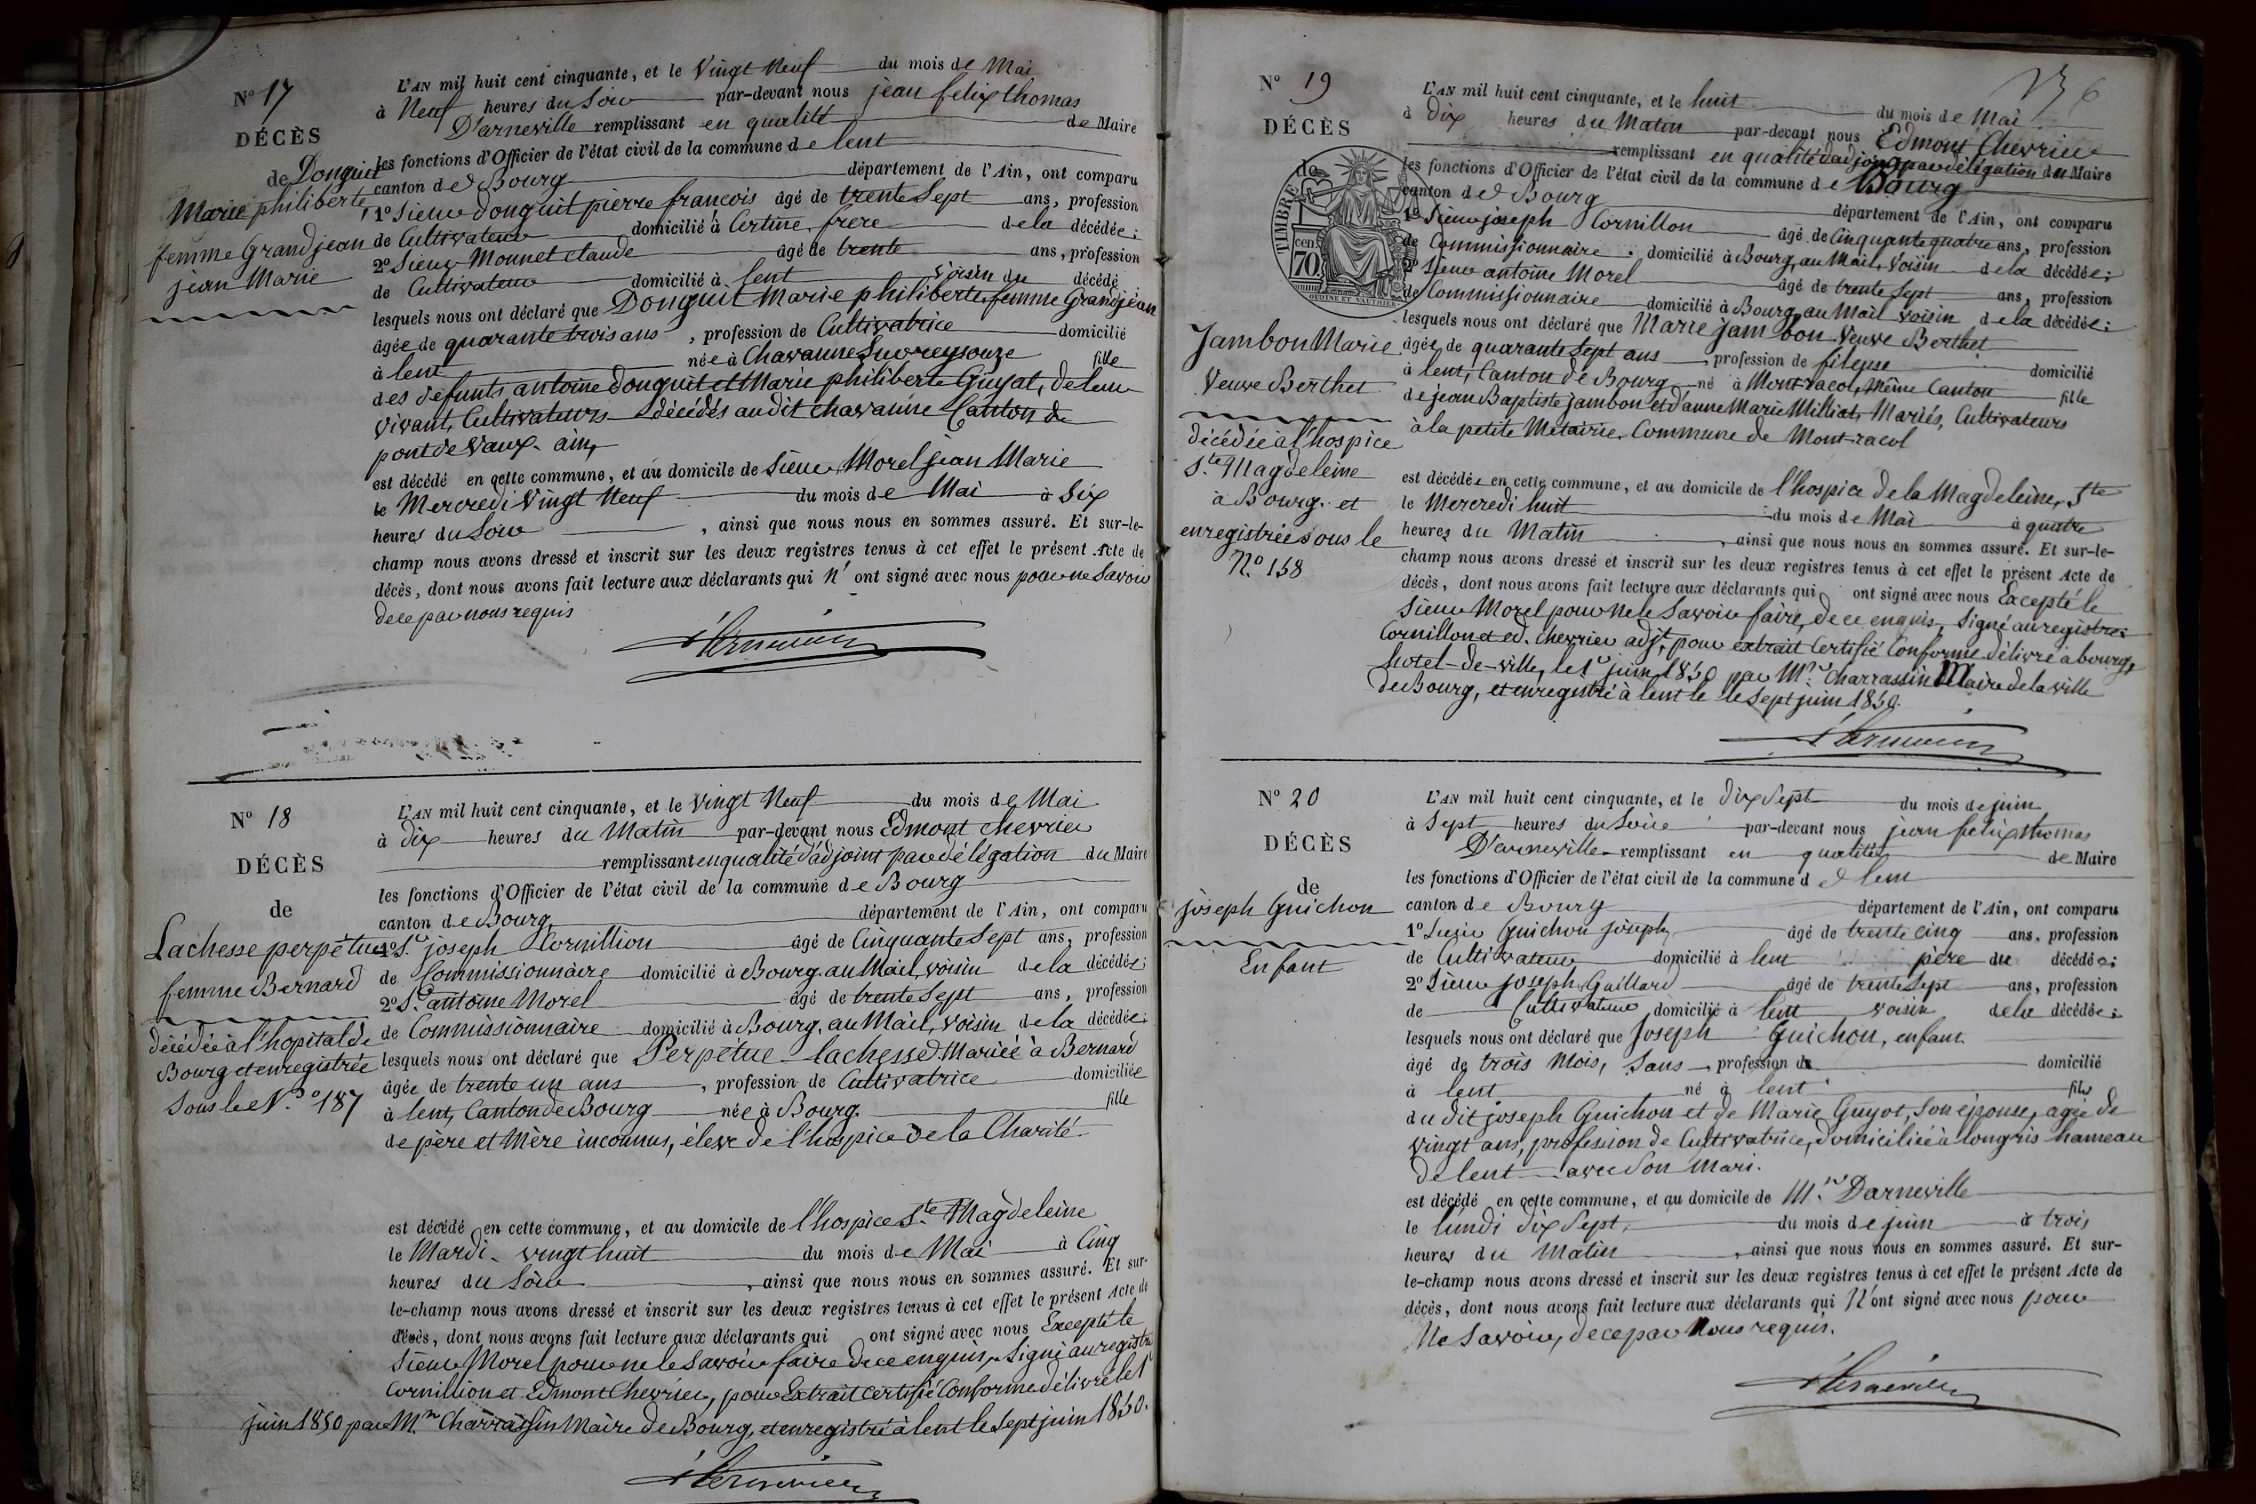 N° 17
DÉCÈS
de Donguit
Marie philiberte,
femme Grandjean
jean Marie
L'AN mil huit cent cinquante, et le Vingt Neuf du mois de Mai
à Neuf heures du Soir par-devant nous jean felix thomas
D'arneville remplissant en qualité de Maire
les fonctions d'Officier de l'état civil de la commune de lent
canton de Bourg département de l'Ain, ont comparu
1° Sieur donguit pierre francois âgé de trente Sept ans, profession
de Cultivateur domicilié à Certine, frere de la décédée;
2° Sieur Monnet claude âgé de trente ans, profession
de Cultivateur domicilié à lent Voisin du décédé
lesquels nous ont déclaré que Donguit Marie philiberte, femme Grandjean
âgée de quarante trois ans, profession de Cultivatrice domicilié
à lent née à Chavanne Sur reysouze fille
des défunts, antoine donguit et Marie philiberte Guyat, de leur
vivant, Cultivateurs décédés au dit chavanne Canton de
pont de Vaux. ain,
est décédé en cette commune, et au domicile de Sieur Morel jean Marie
le Mercredi Vingt Neuf du mois de Mai à Six
heures du Soir, ainsi que nous nous en sommes assuré. Et sur-le-
champ nous avons dressé et inscrit sur les deux registres tenus à cet effet le présent Acte de
décès, dont nous avons fait lecture aux déclarants qui N' ont signé avec nous pour ne Savoir
de ce par nous requis
N° 18
DÉCÈS
de
Lachesse perpétue
femme Bernard
décédée à l'hopital de
Bourg et enregistrée
Sous le N.° 187
L'AN mil huit cent cinquante, et le vingt Neuf du mois de Mai
à dix heures du Matin par-devant nous Edmont chevrier
remplissant en qualité d'adjoint par délégation du Maire
les fonctions d'Officier de l'état civil de la commune de Bourg
canton de Bourg département de l'Ain, ont comparu
1° S.r joseph Cornillion âgé de Cinquante Sept ans, profession
de Commissionnaire domicilié à Bourg, au Mail, voisin de la décédée;
2° S.r antoine Morel âgé de trente Sept ans, profession
de Commissionnaire domicilié à Bourg, au Mail, Voisin de la décédée;
lesquels nous ont déclaré que Perpétue lachesse Mariée à Bernard
âgée de trente un ans, profession de Cultivatrice domiciliée
à lent, Canton de Bourg née à Bourg. fille
de père et Mère inconnus, élève de l'hospice de la Charité
est décédé en cette commune, et au domicile de l'hospice S.te Magdeleine
le Mardi vingt huit du mois de Mai à Cinq
heures du Soir, ainsi que nous nous en sommes assuré. Et sur-
le-champ nous avons dressé et inscrit sur les deux registres tenus à cet effet le présent Acte de
décès, dont nous avons fait lecture aux déclarants qui ont signé avec nous Excepté le
Sieur Morel pour ne le Savoir faire de ce enquis, Signé au registre
Cornillion et Edmont Chevrier, pour Extrait certifié Conforme délivré le 1er
juin 1850 par M.r Charrassin Maire de Bourg, et enregistré à lent le Sept juin 1850.
N° 19
DÉCÈS
de
TIMBRE
cen
70
OUDINE ET VAUTHIER
Jambon Marie
Veuve Berthet
décédée à l'hospice
S.te Magdeleine
à Bourg. et
enregistrée sous le
N.° 158
L'AN mil huit cent cinquante, et le huit du mois de Mai
à dix heures du Matin par-devant nous Edmont Chevrier
remplissant en qualité d'adjoint par délégation du Maire
les fonctions d'Officier de l'état civil de la commune de Bourg
canton de Bourg département de l'Ain, ont comparu
1° Sieur joseph Cornillon âgé de Cinquante quatre ans, profession
de Commissionnaire domicilié à Bourg, au Mail, Voisin de la décédée;
2° Sieur antoine Morel âgé de trente Sept ans, profession
de Commissionnaire domicilié à Bourg, au Mail voisin de la décédée;
lesquels nous ont déclaré que Marie jambon Veuve Berthet
âgée de quarante Sept ans profession de fileuse domicilié
à lent, Canton de Bourg né à Montracol, Même Canton fille
de jean Baptiste jambon et d'anne Marie Milliat, Mariés, Cultivateurs
à la petite Métairie, Commune de Montracol
est décédée en cette commune, et au domicile de l'hospice de la Magdeleine, Ste
le Mercredi huit du mois de Mai à quatre
heures du Matin, ainsi que nous nous en sommes assuré. Et sur-le-
champ nous avons dressé et inscrit sur les deux registres tenus à cet effet le présent Acte de
décès, dont nous avons fait lecture aux déclarants qui ont signé avec nous Excepté le
Sieur Morel pour ne le Savoir faire, de ce enquis, Signé au registre:
Cornillon et ed. chevrier adj.t, pour extrait Certifié Conforme délivré à bourg,
hotel-de-ville, le 1er juin 1850 par M.r Charrassin Maire de la ville
de Bourg, et enregistré à lent le le Sept juin 1850.
N° 20
DÉCÈS
de
joseph Guichon
Enfant
L'AN mil huit cent cinquante, et le dix Sept du mois de juin
à Sept heures du Soire par-devant nous jean felix thomas
D'arneville remplissant en qualité de Maire
les fonctions d'Officier de l'état civil de la commune de lent
canton de Bourg département de l'Ain, ont comparu
1° Sieur Guichon joseph âgé de trente cinq ans, profession
de Cultivateur domicilié à lent père du décédé;
2° Sieur joseph Gaillard âgé de trente Sept ans, profession
de Cultivateur domicilié à lent voisin de la décédée;
lesquels nous ont déclaré que Joseph Guichon, enfant.
âgé de trois Mois, Sans profession de domicilié
à lent né à lent fils
du dit joseph Guichon et de Marie Guyot, Son épouse, agée de
vingt ans, profession de Cultivatrice, domiciliée à longris hameau
de lent avec Son Mari.
est décédé en cette commune, et au domicile de M.r Darneville
le lundi dix Sept, du mois de juin à trois
heures du Matin, ainsi que nous nous en sommes assuré. Et sur-
le-champ nous avons dressé et inscrit sur les deux registres tenus à cet effet le présent Acte de
décès, dont nous avons fait lecture aux déclarants qui N'ont signé avec nous pour
Ne Savoir, de ce par Nous requis.